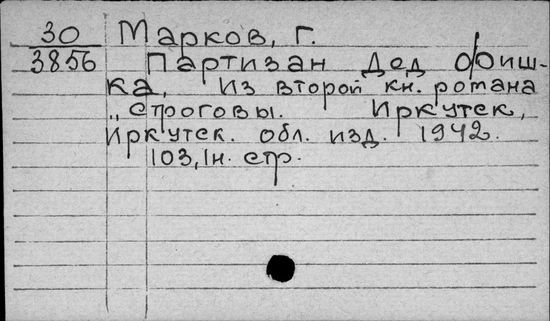 30 Марков, Г.
3856 Партизан Дед Фиш-
ка, Из второй кн. романа
„Строговы. Иркутск,
Иркутск. обл. изд. 1942.
103, 1н. стр.